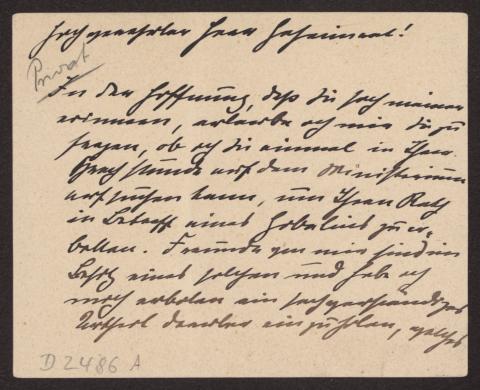 Hochgeehrter Herr Geheimrat!
Privat
In der Hoffnung, daß Sie sich meiner
erinnern, erlaube ich mir Sie zu
fragen, ob ich Sie einmal in Ihrer
Sprechstunde auf dem Ministerium
aufsuchen kann, um Ihren Rath
in Betreff eines Gobelins zu er-
bitten. Freunde von mir sind im
Besitz eines solchen und habe ich
mich erboten ein sachverständiges
Urtheil darüber einzuholen, welches
D 2486 A